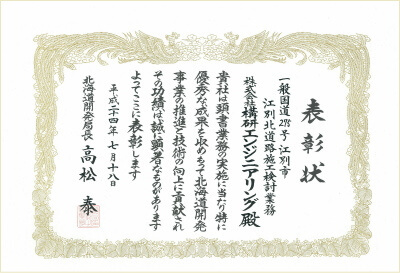 表彰状
一般国道275号 江別市
江別北道路施工検討業務
株式会社構研エンジニアリング殿
貴社は頭書業務の実施に当たり特に
優秀な成果を収めもって北海道開発
事業の推進と技術の向上に貢献され
その功績は誠に顕著なものがあります
よってここに表彰します
平成二十四年七月十八日
北海道開発局長 高松 泰